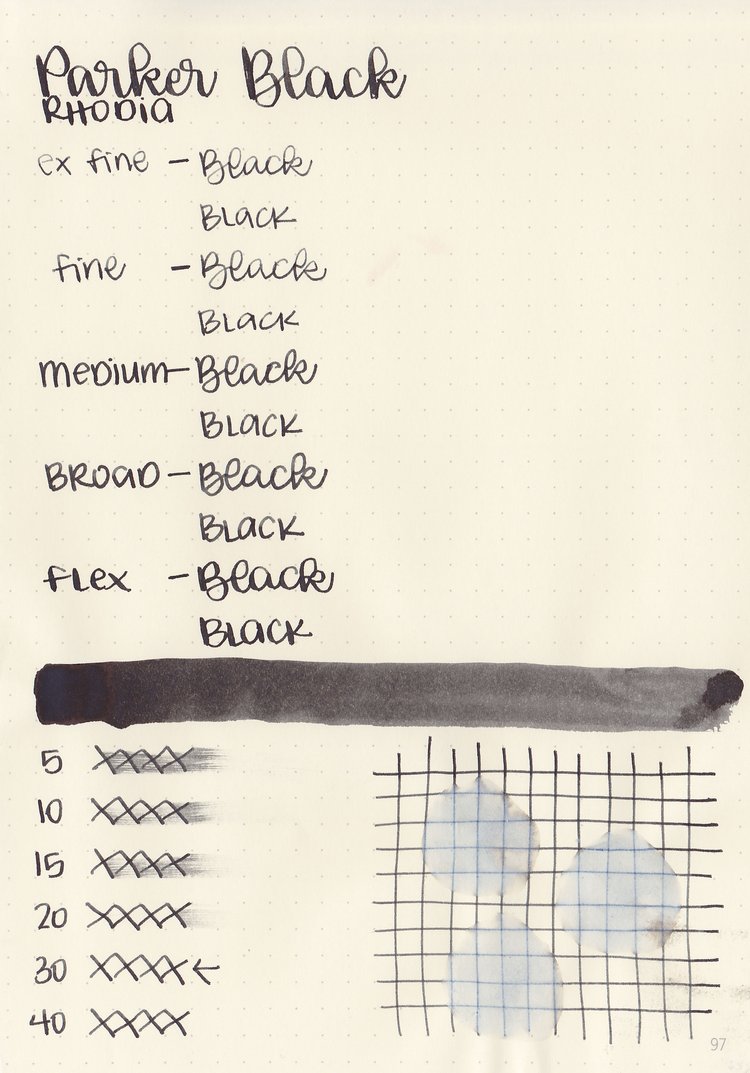 Parker Black
RHODIA
ex fine - Black
BLACK
fine - Black
BLACK
medium - Black
BLACK
BROAD - Black
BLACK
FLEX - Black
BLACK
5 XXXX
10 XXXX
15 XXXX
20 XXXX
30 XXXX ←
40 XXXX
97